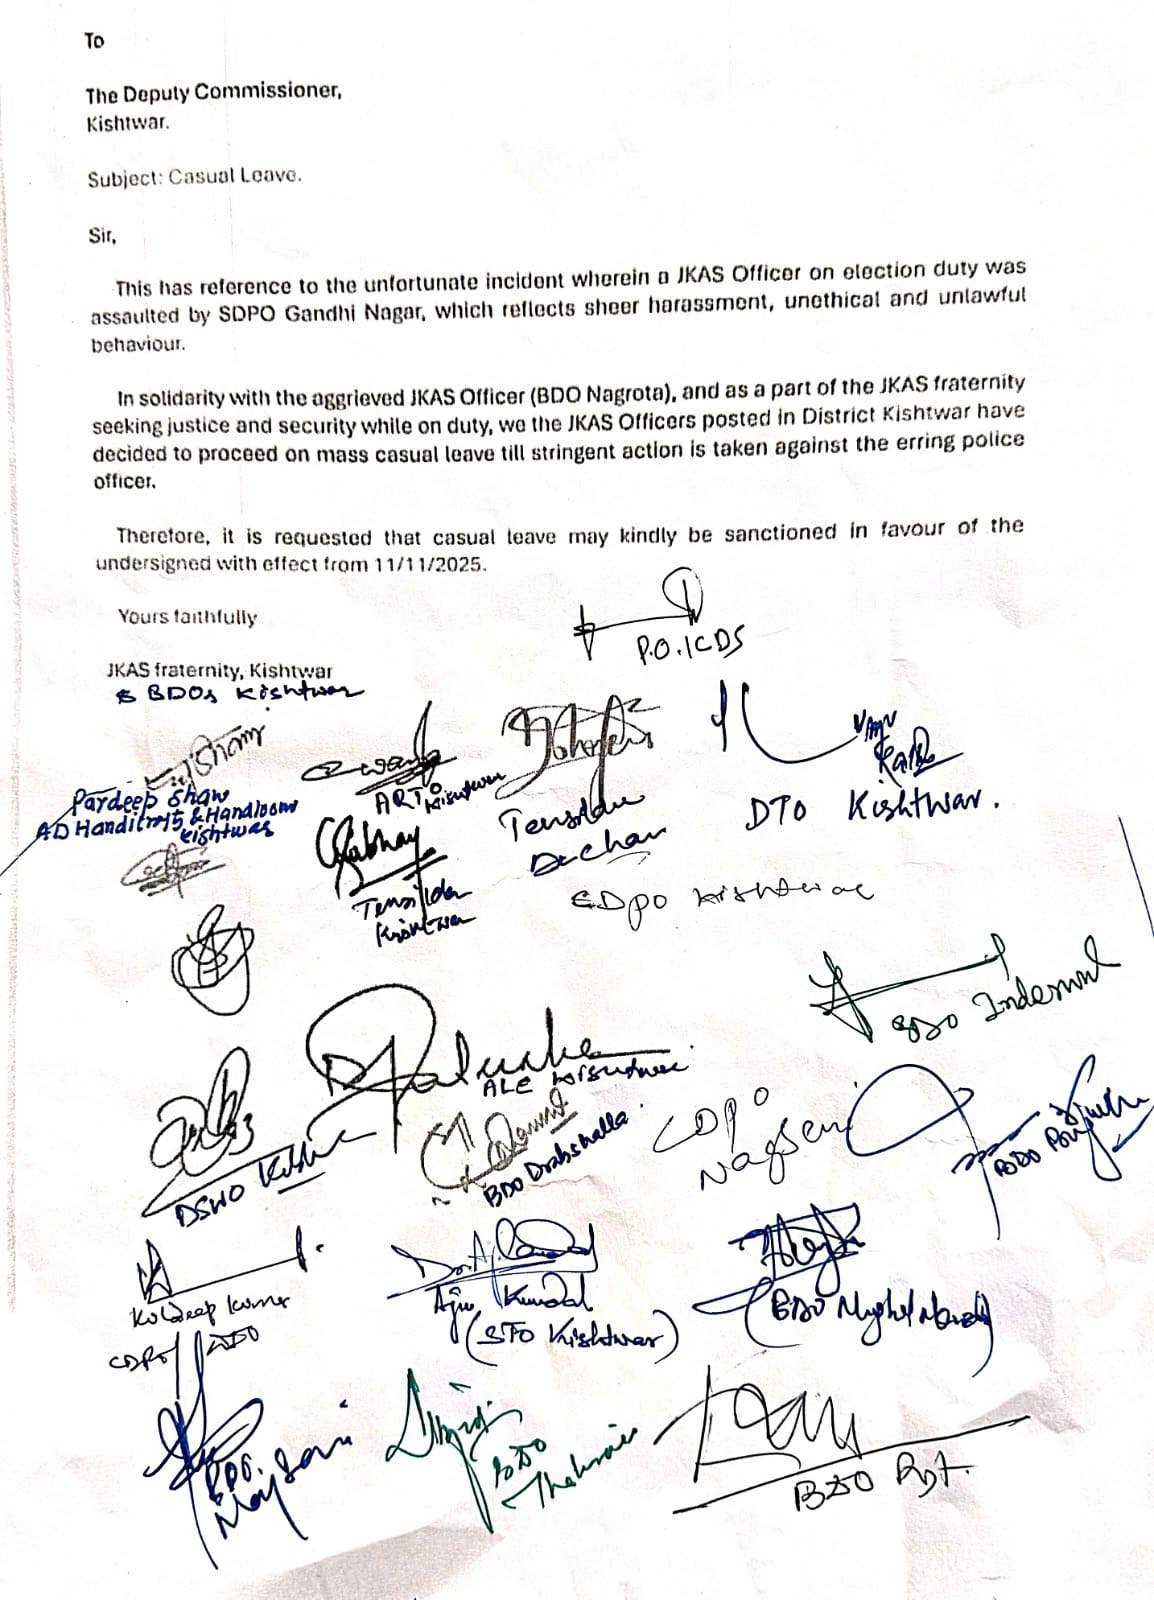 To
The Deputy Commissioner,
Kishtwar.
Subject: Casual Leave.
Sir,
This has reference to the unfortunate incident wherein a JKAS Officer on election duty was
assaulted by SDPO Gandhi Nagar, which reflects sheer harassment, unethical and unlawful
behaviour.
In solidarity with the aggrieved JKAS Officer (BDO Nagrota), and as a part of the JKAS fraternity
seeking justice and security while on duty, we the JKAS Officers posted in District Kishtwar have
decided to proceed on mass casual leave till stringent action is taken against the erring police
officer.
Therefore, it is requested that casual leave may kindly be sanctioned in favour of the
undersigned with effect from 11/11/2025.
Yours faithfully
P.O. ICDS
JKAS fraternity, Kishtwar
& BDOs Kishtwar
Pardeep Shaw
AD Handicrafts & Handloom
Kishtwar
ARTO
Kishtwar
DTO Kishtwar.
Kishtwar
BDO
ALE Kishtwar
CDPO
Nagseni
BDO Drabshalla
BDO
DSWO
Kuldeep Kumar
(STO Kishtwar)
BDO
BDO